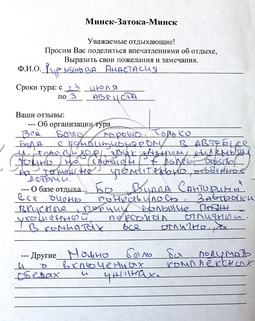 Минск-Затока-Минск
Уважаемые отдыхающие!
Просим Вас поделиться впечатлениями об отдыхе,
Выразить свои пожелания и замечания.
Ф.И.О. Анастасия
Сроки тура: с 23 июля
по 3 августа
Ваши отзывы:
--- Об организации тура
Всё было хорошо. Только
беда с кондиционером в автобусе
и телевизор, звук задним сиденьям
точно не слышен +
на таможне утомительно, особенно
детьми.
--- О базе отдыха Бо Вилла Санторини
все очень понравилось. Завтраки
вкусные, порции большие
ухоженной, персонал отличный.
В комнатах все отлично,
--- Другие Можно было бы подумать
и о включенных комплексных
обедах и ужинах.